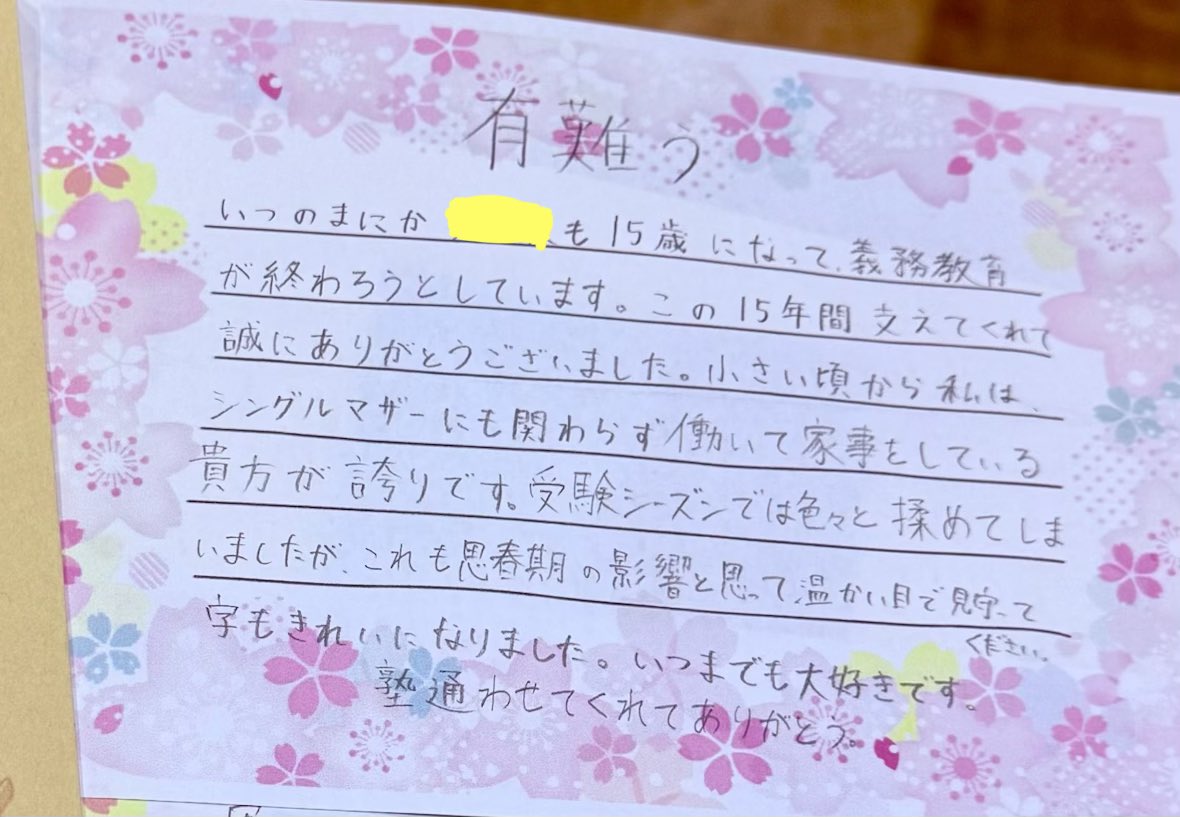 有難う
いつのまにか も15歳になって、義務教育
が終わろうとしています。この15年間支えてくれて
誠にありがとうございました。小さい頃から私は、
シングルマザーにも関わらず働いて家事をしている
貴方が誇りです。受験シーズンでは色々と揉めてしま
いましたが、これも思春期の影響と思って、温かい目で見守って
ください。
字もきれいになりました。いつまでも大好きです。
塾通わせてくれてありがとう。